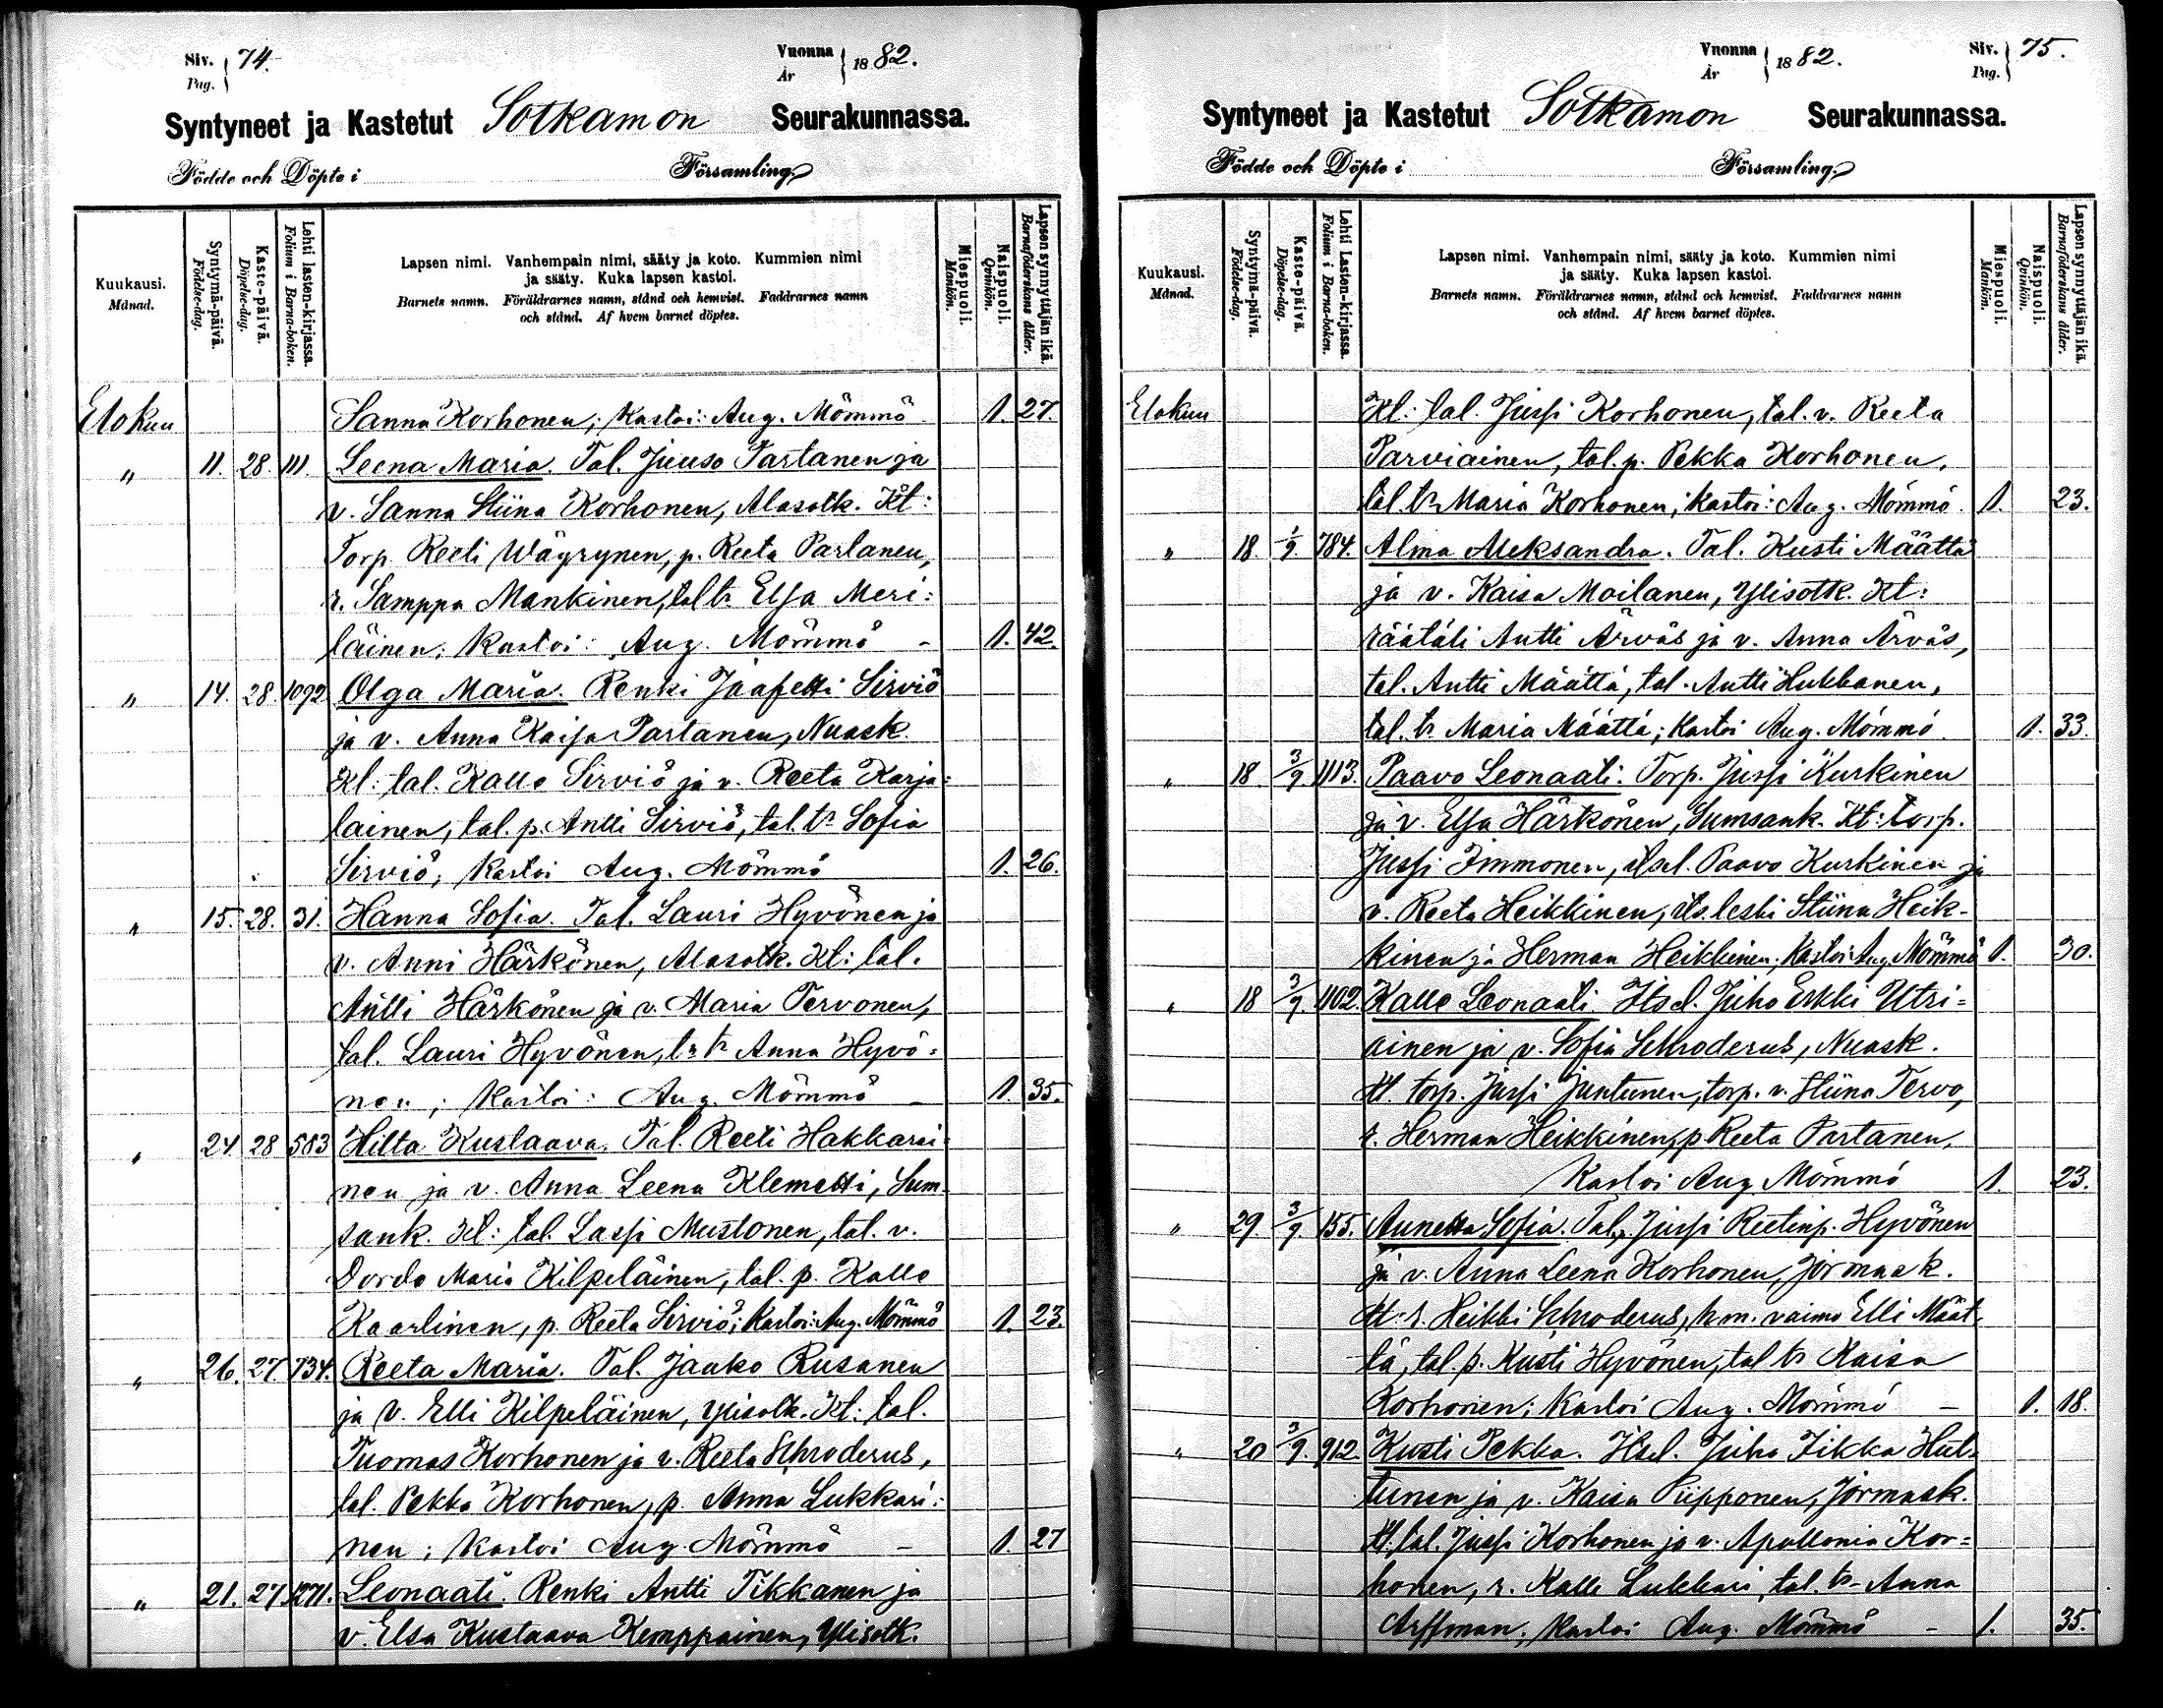 Siv. 74.
Pag.
Vuonna 1882.
År
Syntyneet ja Kastetut Sotkamon Seurakunnassa.
Födde och Döpte i Församling
Kuukausi.
Månad.
Syntymä-päivä.
Födelse-dag.
Kaste-päivä.
Döpelse-dag.
Lehti lasten-kirjassa.
Folium i Barna-boken.
Lapsen nimi. Vanhempain nimi, sääty ja koto. Kummien nimi
ja sääty. Kuka lapsen kastoi.
Barnets namn. Föräldrarnes namn, stånd och hemvist. Faddrarnes namn
och stånd. Af hvem barnet döptes.
Miespuoli.
Mankön.
Naispuoli.
Qvinkön.
Lapsen synnyttäjän ikä.
Barnaföderskans ålder.
Elokuu Sanna Korhonen; kastoi: Aug. Mömmö 1. 27.
" 11. 28. 111. Leena Maria. Tal. Juuso Partanen ja
v. Sanna Stiina Korhonen, Alasotk. Kt:
Torp. Reeti Wäyrynen, p. Reeta Partanen,
r. Samppa Mankinen, tal. tr Elsa Meri:
läinen; kastoi: Aug. Mömmö - 1. 42.
" 14. 28. 1092 Olga Maria. Renki Jaafetti Sirviö
ja v. Anna Kaisa Partanen, Nuask.
Kt: tal. Kalle Sirviö ja v. Reeta Karja:
lainen, tal. p. Antti Sirviö, tal. tr Sofia
Sirviö; kastoi Aug. Mömmö 1. 26.
" 15. 28. 31. Hanna Sofia. Tal. Lauri Hyvönen ja
v. Anni Härkönen, Alasotk. Kt: tal.
Antti Härkönen ja v. Maria Tervonen,
tal. Lauri Hyvönen, tr Anna Hyvö:
nen; kastoi: Aug. Mömmö - 1. 35.
" 24. 28 583 Hilta Kustaava. Tal. Reeti Hakkarai:
nen ja v. Anna Leena Klemetti, Sum
sank. Kt: tal. Lassi Mustonen, tal. v.
Dordo Maria Kilpeläinen, tal. p. Kalle
Kaarlinen, p. Reeta Sirviö; kastoi: Aug. Mömmö 1. 23.
" 26. 27. 734. Reeta Maria. Tal. Jaako Rusanen
ja v. Elli Kilpeläinen, Ylisotk. Kt: tal.
Tuomas Korhonen ja v. Reeta Schroderus,
tal. Pekka Korhonen, p. Anna Lukkari:
nen; kastoi Aug. Mömmö - 1. 27
" 21. 27 1271. Leonaati. Renki Antti Tikkanen ja
v. Elsa Kustaava Kemppainen, Ylisotk.
Vuonna 1882.
År
Siv. 75.
Pag.
Syntyneet ja Kastetut Sotkamon Seurakunnassa.
Födde och Döpte i Församling
Kuukausi.
Månad.
Syntymä-päivä.
Födelse-dag.
Kaste-päivä.
Döpelse-dag.
Lehti Lasten-kirjassa.
Folium i Barna-boken.
Lapsen nimi. Vanhempain nimi, sääty ja koto. Kummien nimi
ja sääty. Kuka lapsen kastoi.
Barnets namn. Föräldrarnes namn, stånd och hemvist. Faddrarnes namn
och stånd. Af hvem barnet döptes.
Miespuoli.
Mankön.
Naispuoli.
Qvinkön.
Lapsen synnyttäjän ikä.
Barnaföderskans ålder.
Elokuu Kt: tal. Jussi Korhonen, tal. v. Reeta
Parviainen, tal. p. Pekka Korhonen,
tal. tr Maria Korhonen; kastoi: Aug. Mömmö. 1. 23.
" 18 1/9. 784. Alma Aleksandra. Tal. Kusti Määttä
ja v. Kaisa Moilanen, Ylisotk. Kt:
räätäli Antti Ärväs ja v. Anna Ärväs,
tal. Antti Määttä, tal. Antti Hukkanen,
tal. tr Maria Määttä; kastoi Aug. Mömmö. 1. 33.
" 18. 3/9 1113. Paavo Leonaati. Torp. Jussi Kurkinen
ja v. Elsa Härkönen, Sumsank. Kt: torp.
Jussi Immonen, itsel. Paavo Kurkinen ja
v. Reeta Heikkinen, its. leski Stiina Heik-
kinen ja Herman Heikkinen; kastoi Aug. Mömmö 1. 30.
" 18 3/9. 1102. Kalle Leonaati. Itsel. Juho Erkki Utri=
ainen ja v. Sofia Schroderus, Nuask.
Kt. torp. Jussi Juntunen, torp. v. Stiina Tervo,
r. Herman Heikkinen, p. Reeta Partanen,
kastoi Aug. Mömmö 1. 23.
" 29. 3/9. 155. Annetta Sofia. Tal. Jussi Reetinp. Hyvönen
ja v. Anna Leena Korhonen, Jormask.
Kt: r. Heikki Schroderus, km. vaimo Elli Määt-
tä, tal. p. Kusti Hyvönen, tal tr Kaisa
Korhonen; kastoi Aug. Mömmö - 1. 18.
" 20 3/9. 912. Kusti Pekka. Itsel. Juho Iikka Hul-
tunen ja v. Kaisa Piipponen, Jormask.
Kt. tal. Jussi Korhonen ja v. Apollonia Kor=
honen, r. Kalle Lukkari, tal. tr Anna
Arffman; kastoi Aug. Mömmö - 1. 35.